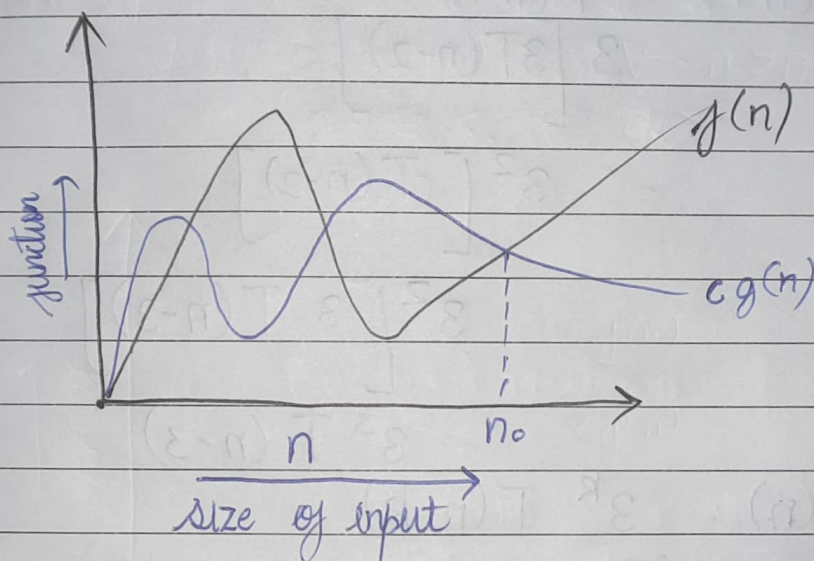 f(n)
function
c g(n)
n₀
n
size of input